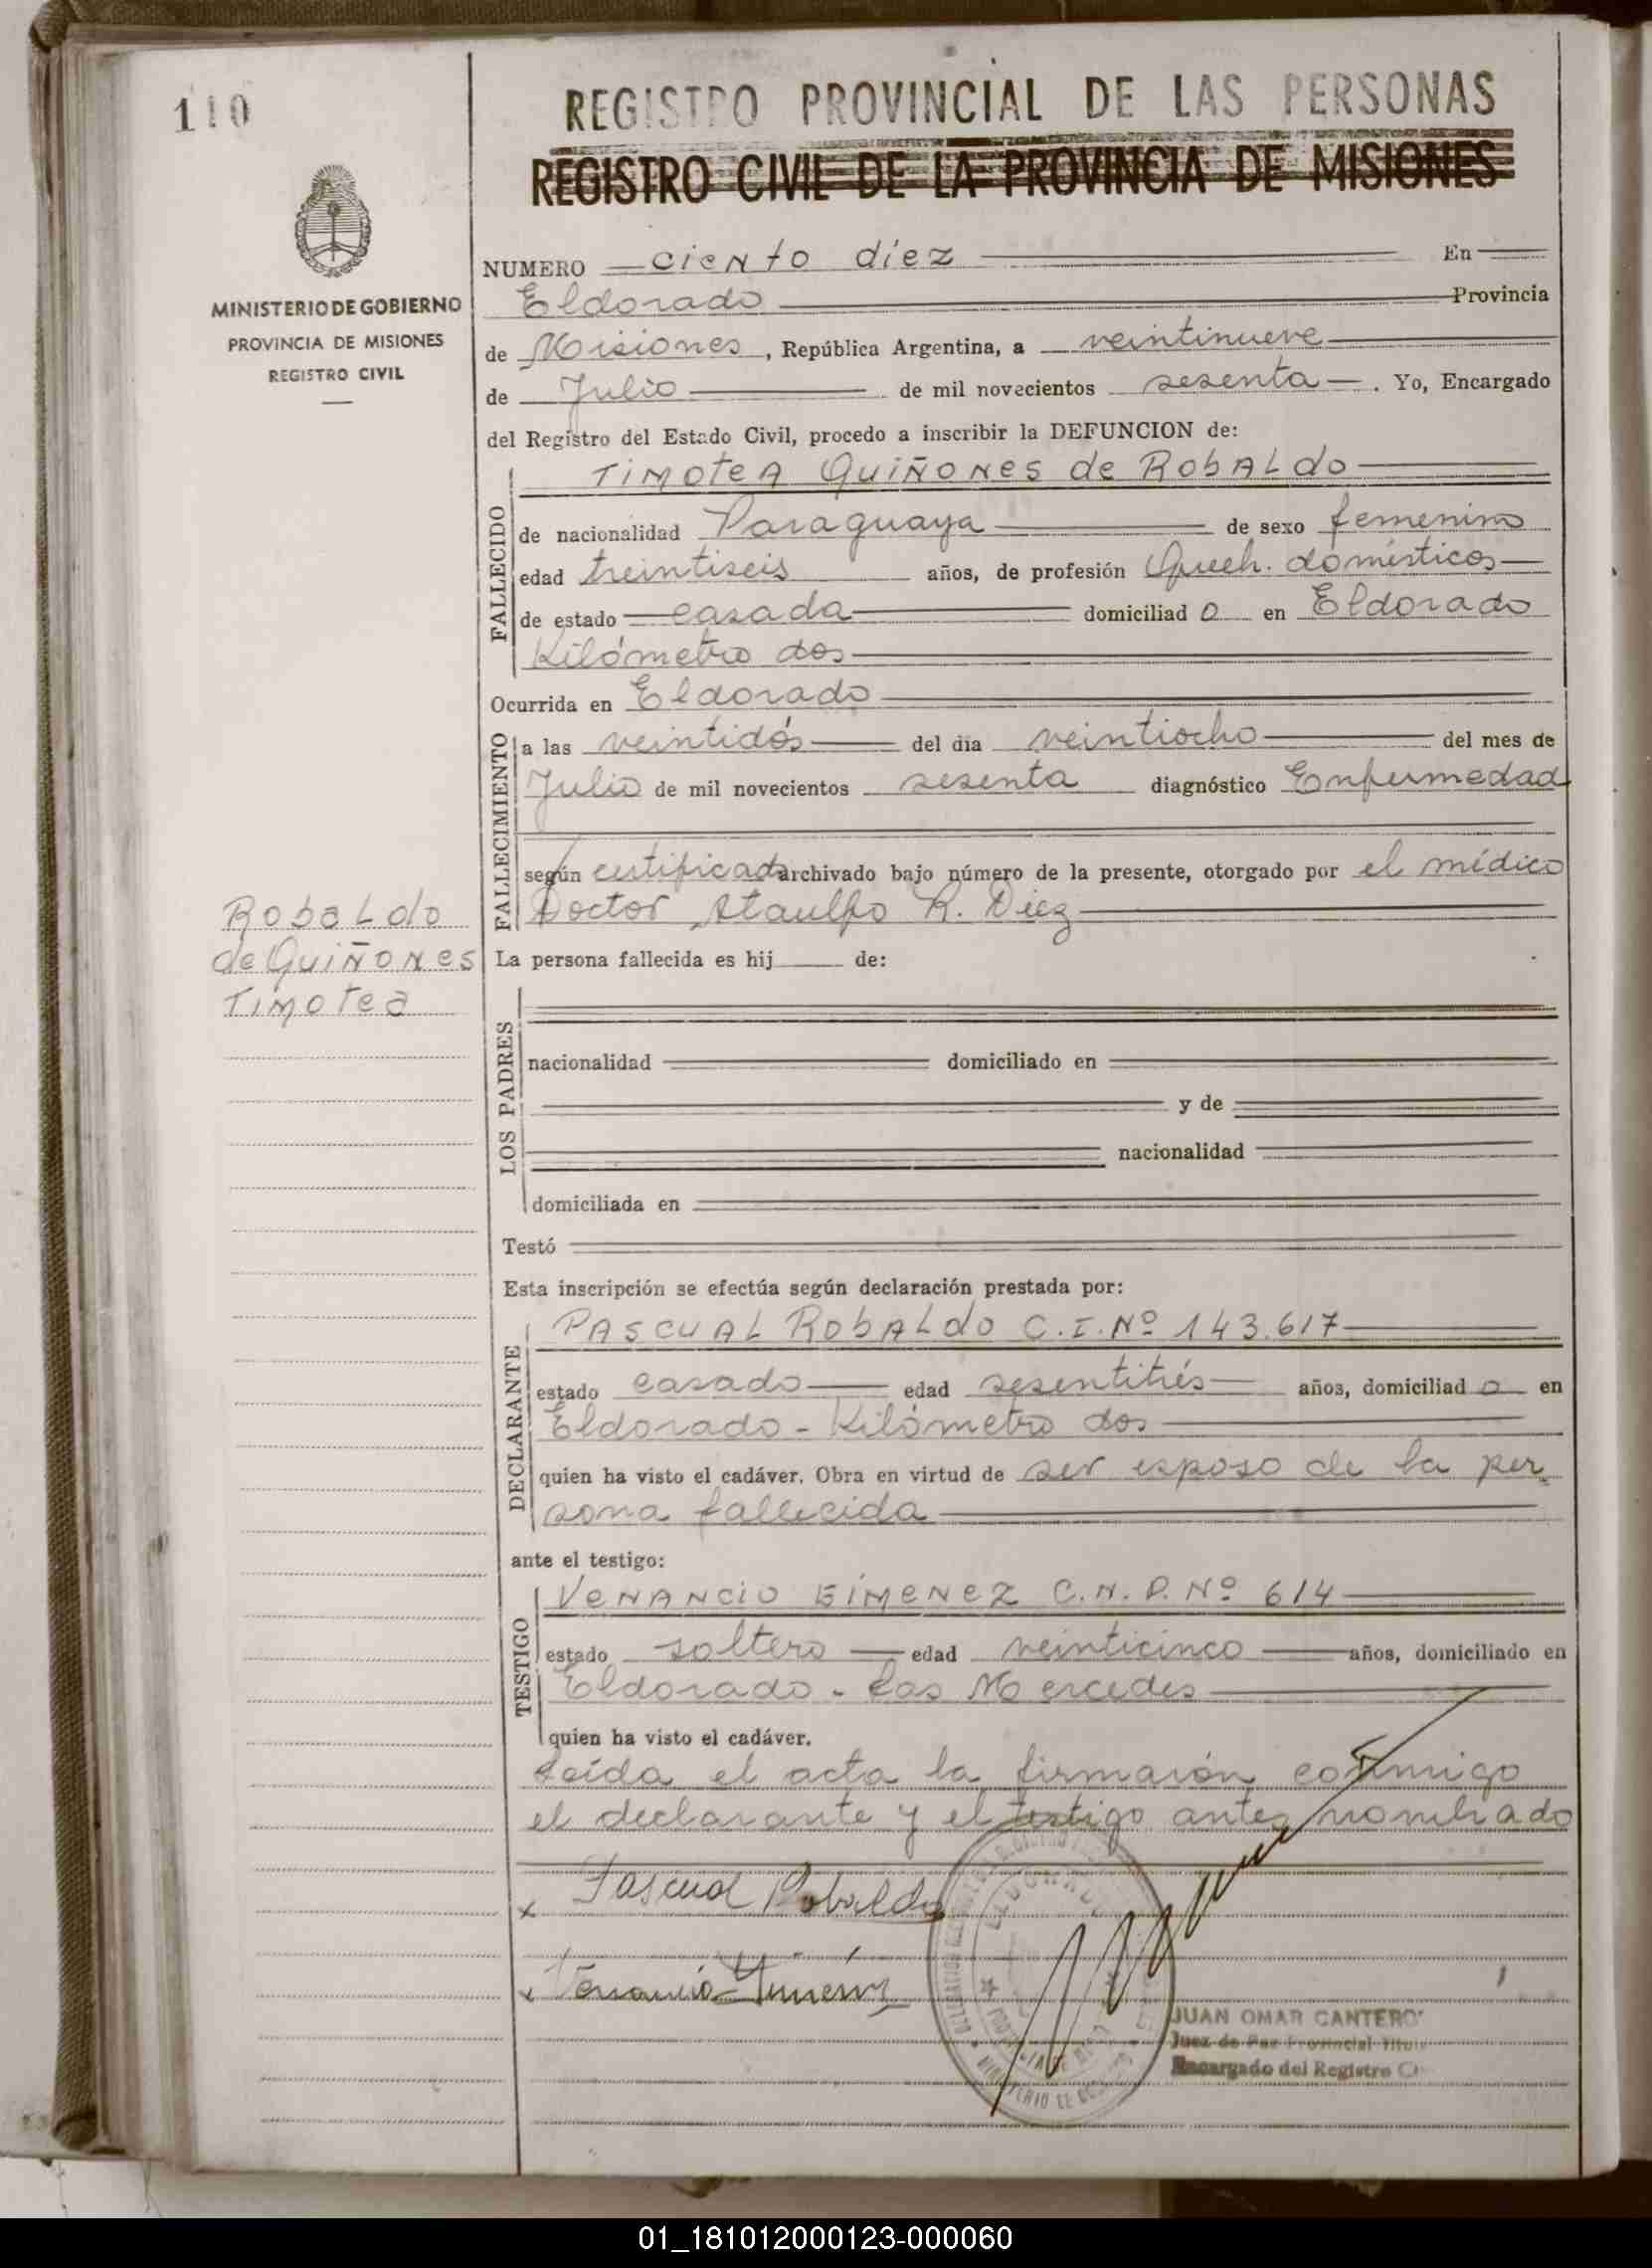 110
REGISTRO PROVINCIAL DE LAS PERSONAS
REGISTRO CIVIL DE LA PROVINCIA DE MISIONES
MINISTERIO DE GOBIERNO
PROVINCIA DE MISIONES
REGISTRO CIVIL
NUMERO ciento diez En
Eldorado Provincia
de Misiones, República Argentina, a veintinueve
de Julio de mil novecientos sesenta. Yo, Encargado
del Registro del Estado Civil, procedo a inscribir la DEFUNCION de:
FALLECIDO
TIMOTEA QUIÑONES de ROBALdo
de nacionalidad Paraguaya de sexo femenino
edad treintiseis años, de profesión Queh. domésticos
de estado casada domiciliad o en Eldorado
Kilómetro dos
Ocurrida en Eldorado
FALLECIMIENTO
a las veintidós del día veintiocho del mes de
Julio de mil novecientos sesenta diagnóstico Enfermedad
según certificado archivado bajo número de la presente, otorgado por el médico
Doctor Ataulfo R. Diez
Robaldo
de Quiñones
Timotea
La persona fallecida es hij de:
LOS PADRES
nacionalidad domiciliado en
y de
nacionalidad
domiciliada en
Testó
Esta inscripción se efectúa según declaración prestada por:
DECLARANTE
PASCUAL ROBALdo C.I.Nº 143.617
estado casado edad sesentitrés años, domiciliad o en
Eldorado - Kilómetro dos
quien ha visto el cadáver. Obra en virtud de ser esposo de la per
sona fallecida
ante el testigo:
TESTIGO
VENANCIO GIMENEZ C.N.P.Nº 614
estado soltero edad veinticinco años, domiciliado en
Eldorado - Las Mercedes
quien ha visto el cadáver.
Leída el acta la firmarón conmigo
el declarante y el testigo antes nombrado
x Pascual Robaldo
x Venancio Gimenez
ELDORADO
JUAN OMAR CANTERO
Juez de Paz Provincial Titular
Encargado del Registro
01_181012000123-000060